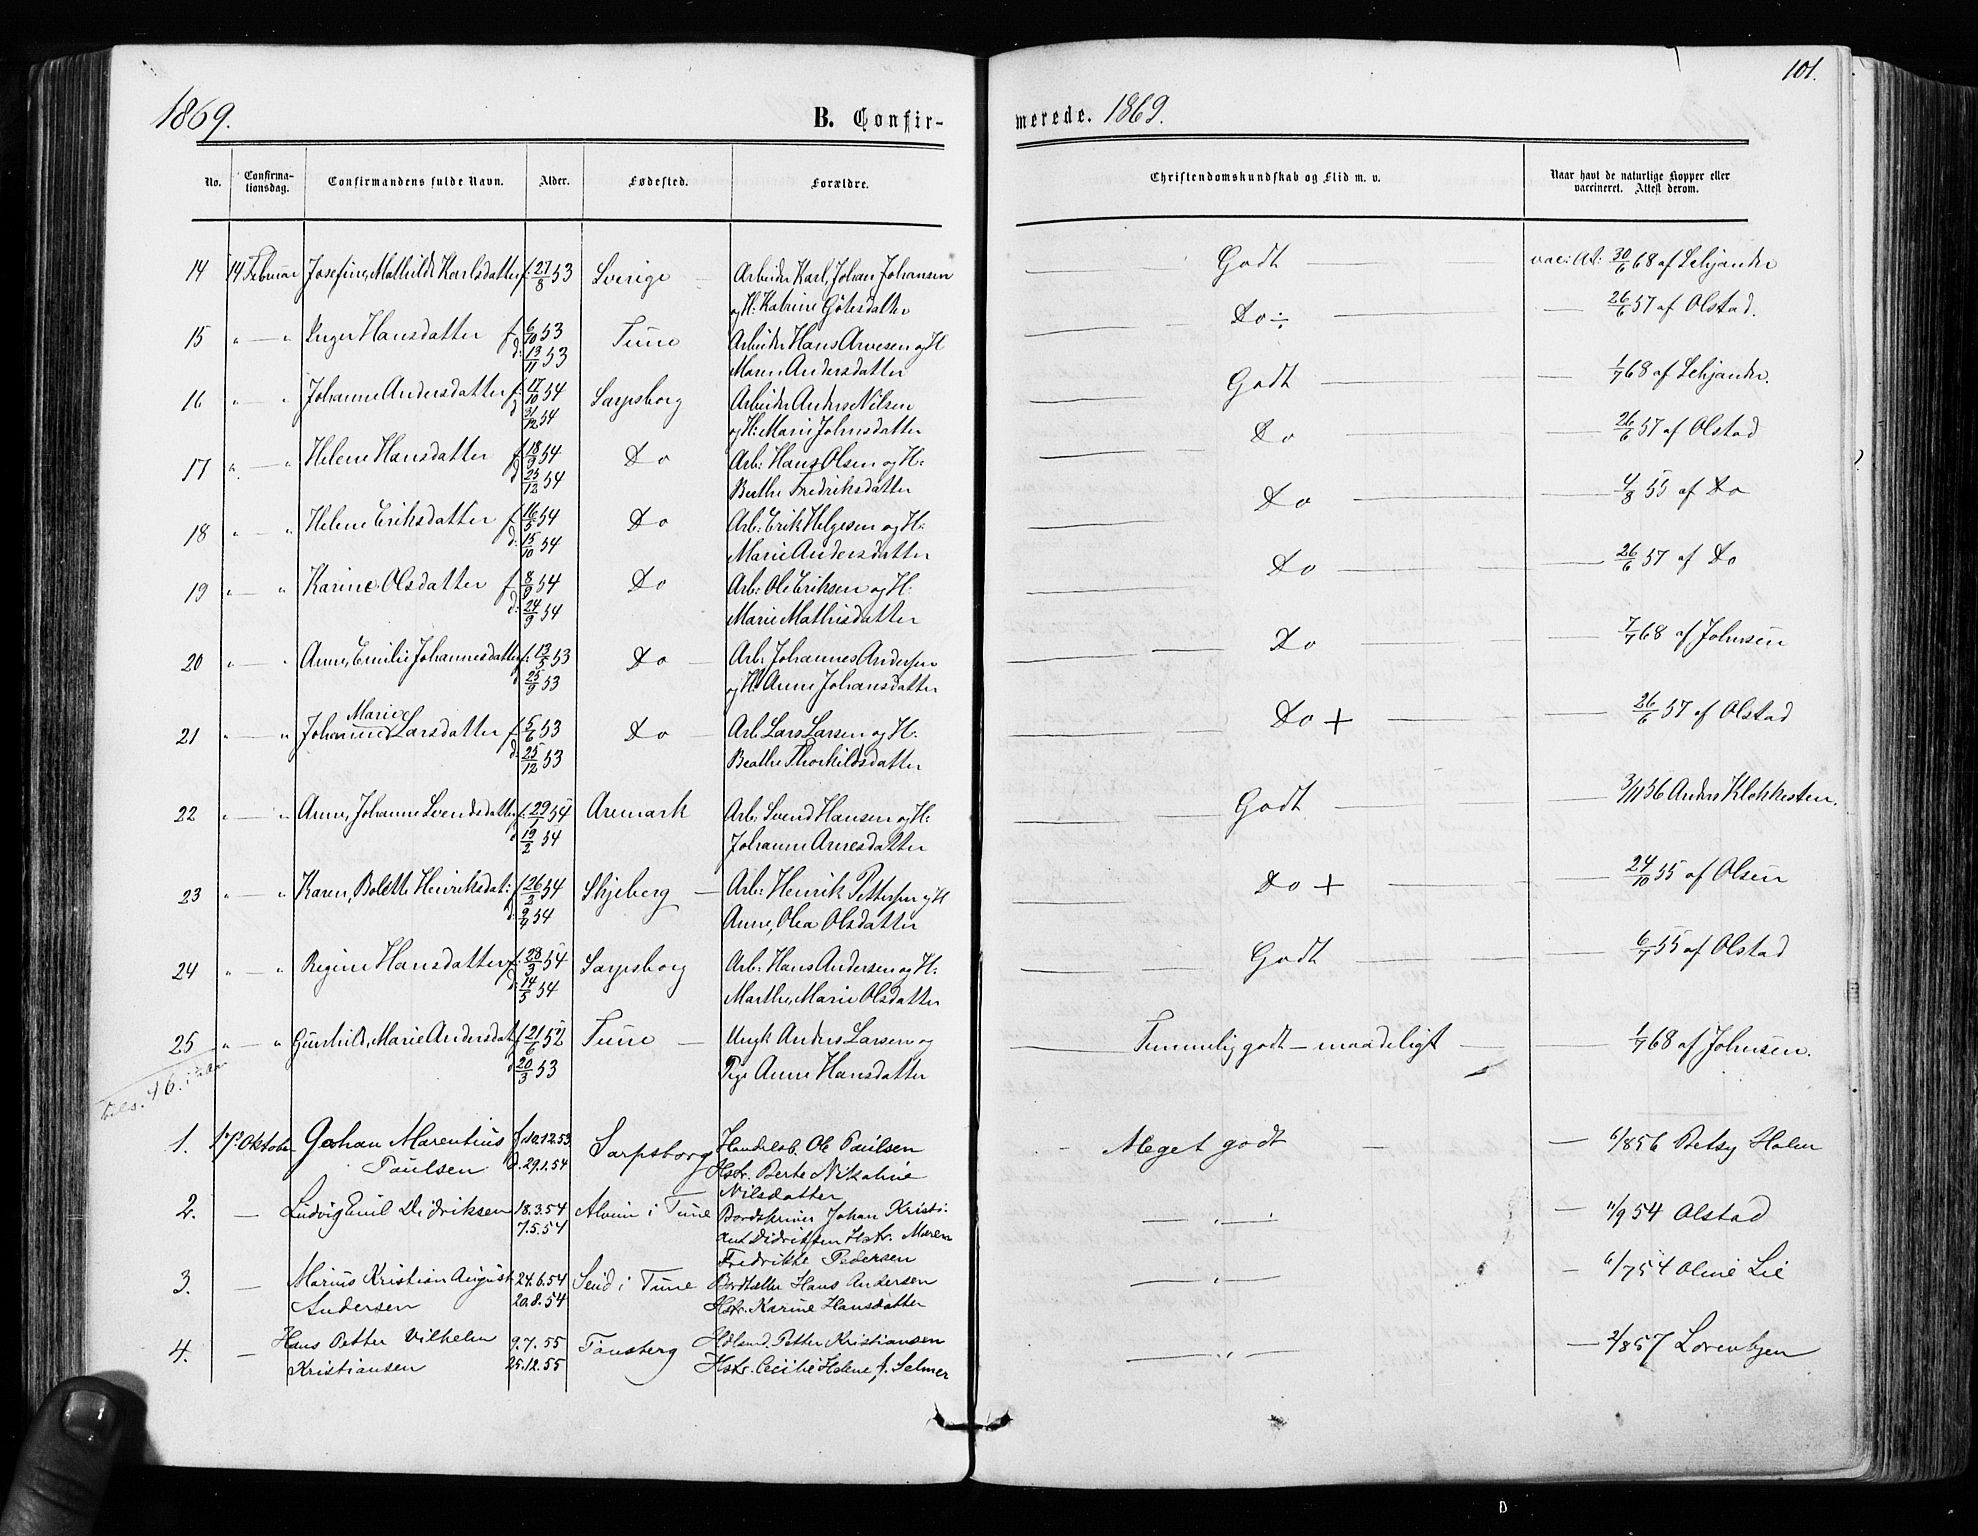 101.
1869. B. Confir- merede. 1869.
No. Confirma- tionsdag. Confirmandens fulde Navn. Alder. Fødested. Forældre. Christendomskundskab og Flid m. v. Naar havt de naturlige Kopper eller
vaccineret. Attest derom.
14 14 Februar Josefine, Mathilde Karlsdatter f. 27/8 53 Sverige Arbeider Karl, Johan Johansen Godt vac: At: 30/6 68 af
og H: Katrine Götesdatter
15 " — " Inger Hansdatter f 6/10 53 Tune Arbeider Hans Arvesen og H Do ÷ — 26/6 57 af Olstad.
d: 13/11 53 Maren Andersdatter
16 " — " Johanne Andersdatter f: 17/10 54 Sarpsborg Arbeider Anders Nilsen Godt — 1/7 68 af
d 31/12 54 og H: Marie Johnsdatter
17 " — " Helene Hansdatter f 18/9 54 Do Arb: Hans Olsen og H: Do — 26/6 57 af Olstad
d 25/12 54 Berthe Fredriksdatter
18 " — " Helene Eriksdatter f 16/5 54 Do Arb: Erik Helgesen og H: Do — 4/8 55 af Do
d: 15/10 54 Marie Andersdatter
19 " — " Karine Olsdatter f 8/9 54 Do Arb: Ole Eriksen og H: Do — 26/6 57 af Do
d: 24/9 54 Marie Mathisdatter
20 " — " Anne, Emilie Johannesdatter f: 13/5 53 Do Arb: Johannes Andersen Do — 7/7 68 af Johnsen
25/9 53 og H: Anne Johansdatter
Marie
21 " — " Johanne Larsdatter f. 5/6 53 Do Arb Lars Larsen og H: Do + — 26/6 57 af Olstad
d: 25/12 53 Beathe Thorkildsdatter
22 " — " Anne, Johanne Svendsdatter f: 29/1 54 Aremark Arb: Svend Hansen og H: Godt — 3/11 56 Anders Klokkesten.
19/2 54 Johanne Arnesdatter
23 " — " Karen, Bolette Henriksdat: f 26/2 54 Skjeberg Arb: Henrik Pettersen og H Do + — 24/10 55 af Olsen
d: 9/4 54 Anne, Olea Olsdatter
24 " — " Regine Hansdatter f: 28/3 54 Sarpsborg Arb: Hans Andersen og H: Godt — 6/7 55 af Olstad
d: 14/5 54 Marthe, Marie Olsdatter
25 " — " Gunhild, Marie Andersdat f 21/6 52 Tune Ungk Anders Larsen og Temmelig godt — maadeligt — 1/7 68 af Johnsen.
d 20/3 53 Pige Anne Hansdatter
1. 17de Oktober Johan Marentius f 10.12.53 Sarpsborg Handelsb. Ole Paulsen Meget godt — 6/8 56 Betsy Holm
Paulsen d. 29.1.54 Hstr. Berte Nikoline
Nilsdatter
2. — Ludvig Emil Didriksen 18.3.54 Alvim i Tune Bordskriver Johan Kristi- — " — — 11/9 54 Olstad
7.5.54 Didriksen Hstr. Maren
Fredrikke Pedersen
3. — Marius Kristian August 24.6.54 i Tune Hans Andersen — " — — 6/7 54 Oline Lie
Andersen 20.8.54 Hstr. Karine Hansdatter
4. — Hans Petter Vilhelm 9.7.55 Tønsberg Petter Kristiansen — " — — 2/8 57
Kristiansen 25.12.55 Hstr. Cecilie Helene f. Selmer